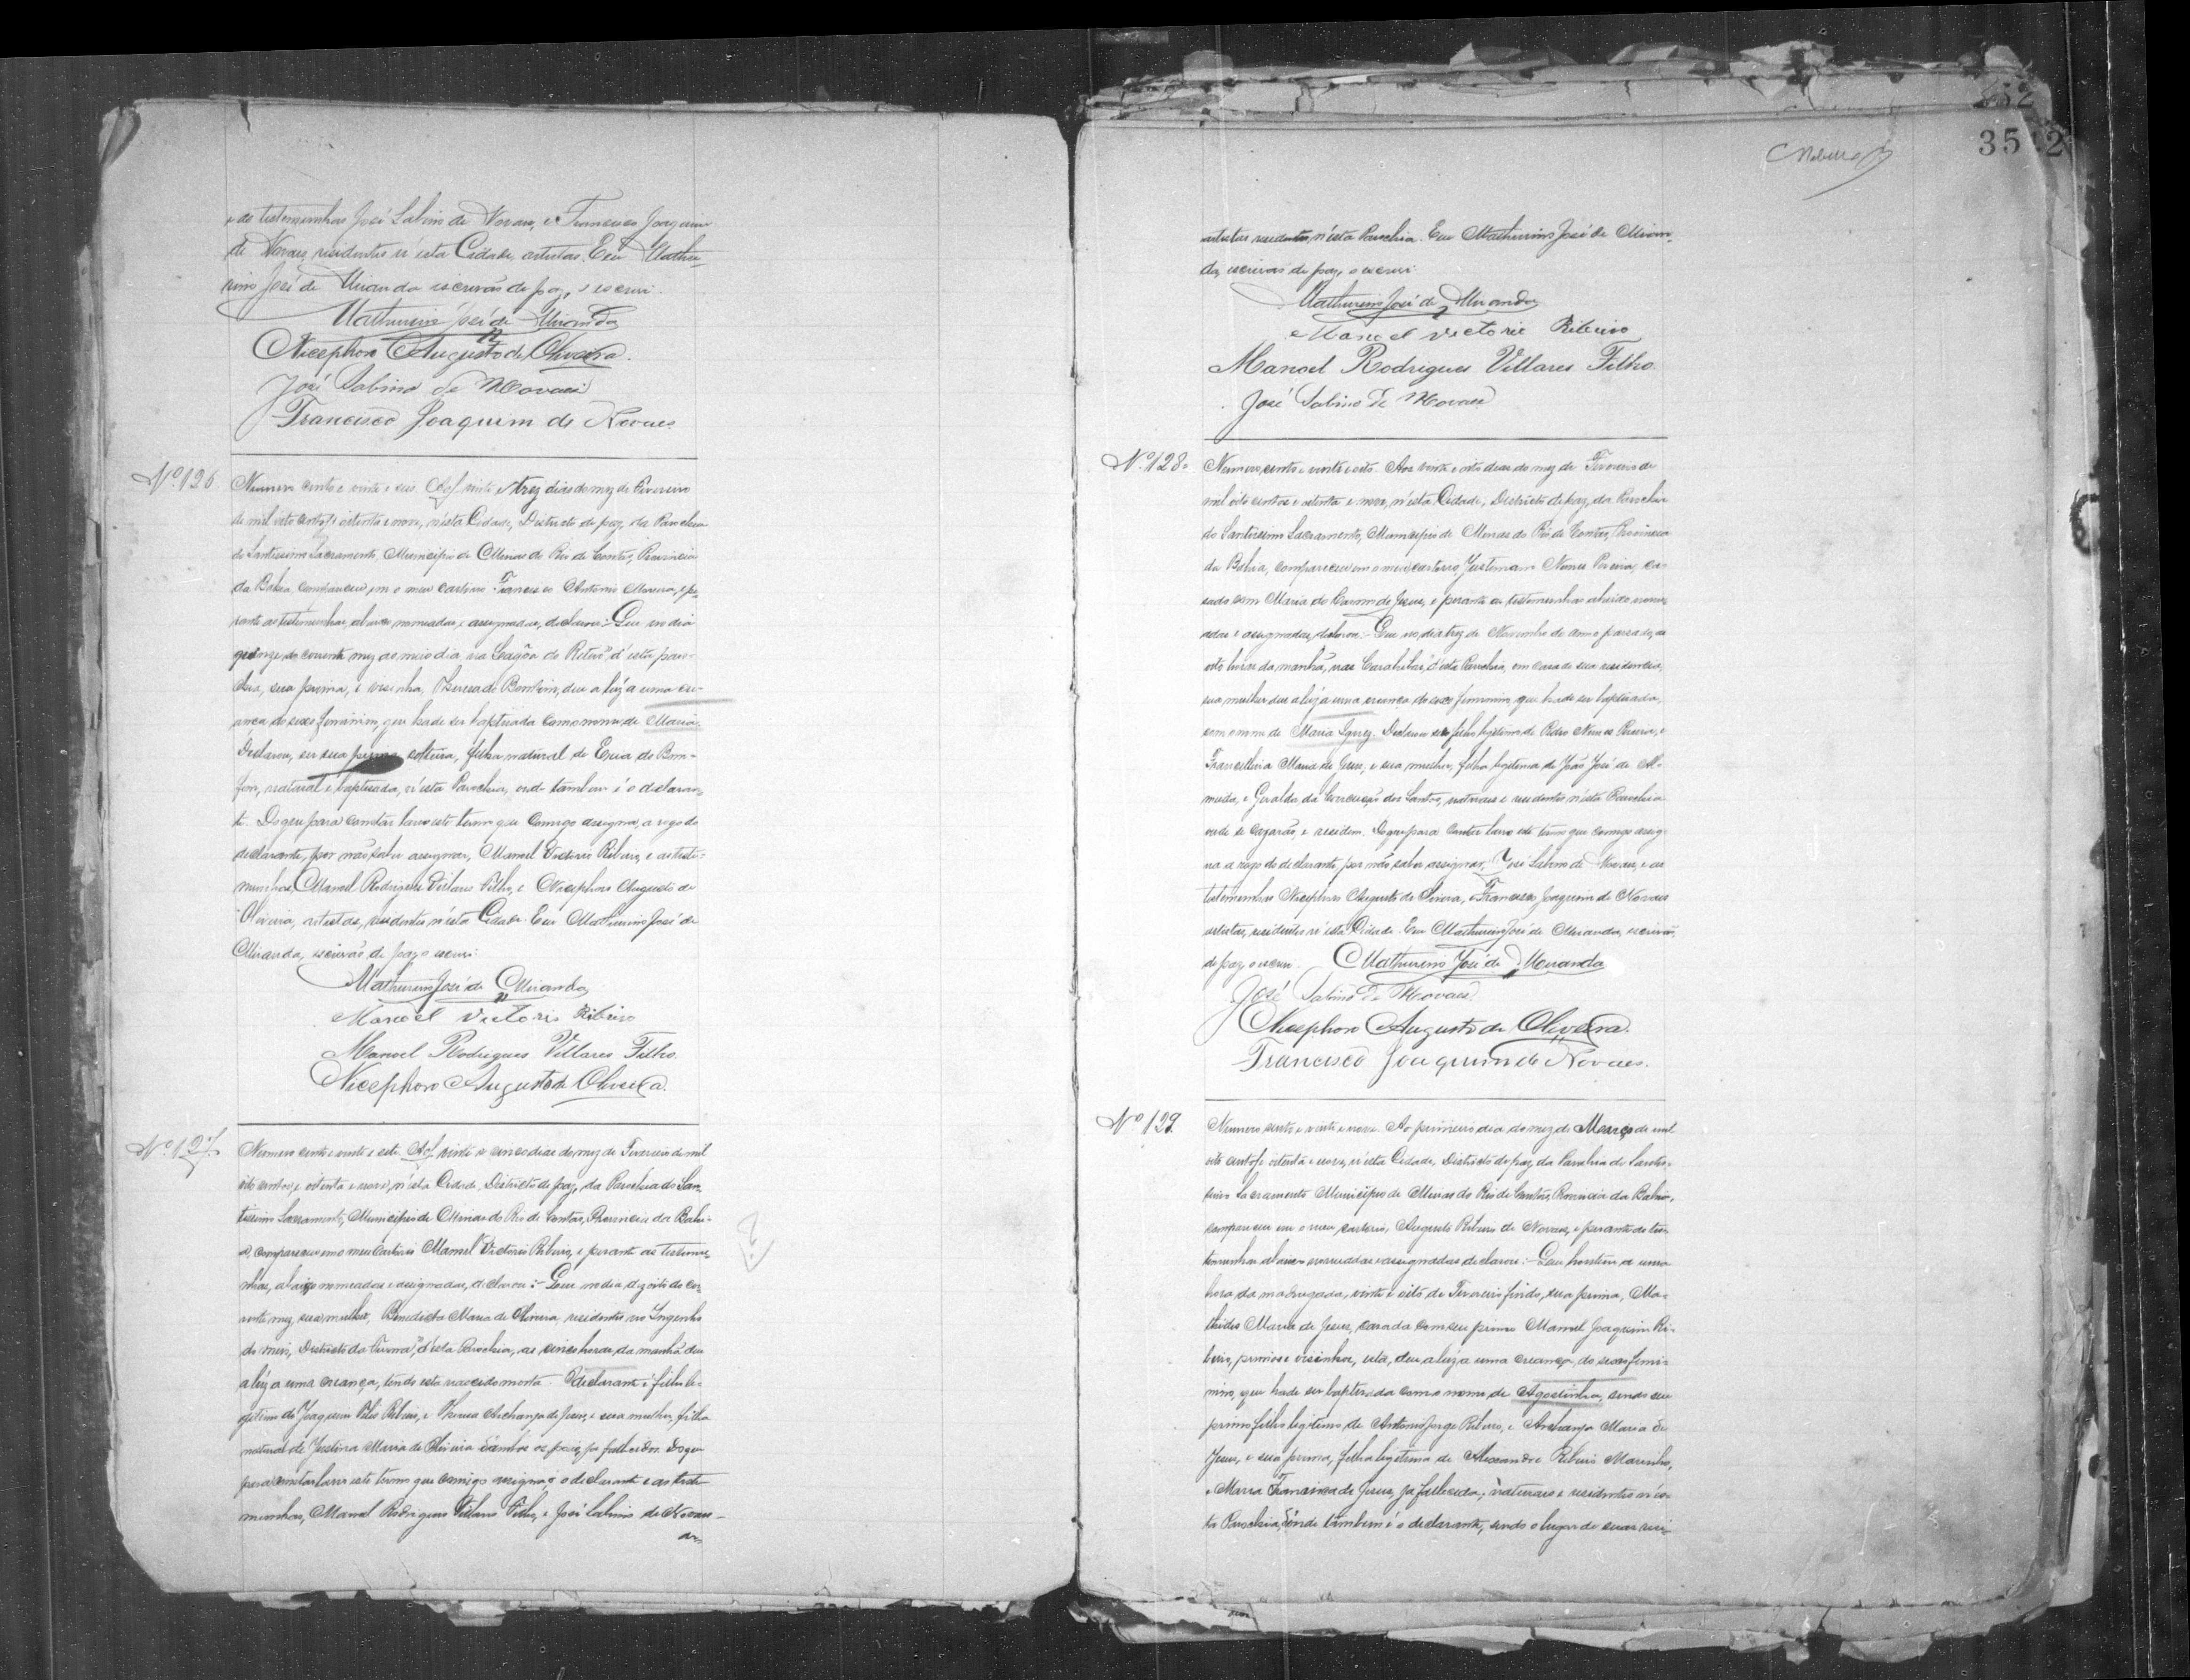 e as testemunhas José Sabino de Novaes, e Francisco Joaquim
de Novaes, residentes n'esta Cidade, artistas. Eu Mathu-
rino José de Miranda escrivão de paz, o escrevi.
Mathurino José de Miranda
Nicephoro Augusto de Oliveira.
José Sabino de Novaes
Francisco Joaquim de Novaes.
Nº 126
Numero cento e vinte e seis. Aos vinte e trez dias do mez de Fevereiro
de mil oito centos e oitenta e nove, n'esta Cidade, Districto de paz, da Parochia
do Santissimo Sacramento, Municipio de Minas do Rio de Contas, Provincia
da Bahia compareceu em o meu cartorio Francisco Antonio Moreira, e pe-
rante as testemunhas, abaixo nomeadas, e assignadas, declarou: Que no dia
quinze do corrente mez ao meio dia na do Retiro, d'esta paro-
chia, sua prima, e visinha, Theresa do Bomfim, deu a luz a uma cri-
ança do sexo feminino, que hade ser baptisada com o nome de Maria.
Declarou, ser sua prima solteira, filha natural de do Bom-
fim, natural e baptisada, n'esta Parochia, onde tambem é o declaran-
te. Do que para constar lavro este termo que comigo assigna, a rogo do
declarante, por não saber assignar, Manoel Victorio Ribeiro, e as teste-
munhas, Manoel Rodrigues Villares Filho, e Nicephoro Augusto de
Oliveira, artistas, residentes n'esta Cidade. Eu Mathurino José de
Miranda, escrivão de paz o escrevi:
Mathurino José de Miranda
Manoel Victorio Ribeiro
Manoel Rodrigues Villares Filho.
Nicephoro Augusto de Oliveira.
Nº 127
Numero cento e vinte e sete. Aos vinte e cinco dias do mez de Fevereiro de mil
oito centos, e oitenta e nove, n'esta Cidade, Districto de paz, da Parochia do San-
tissimo Sacramento, Municipio de Minas do Rio de Contas, Provincia da Bahi-
a, compareceu em o meu Cartorio Manoel Victorio Ribeiro, e perante as testemu-
nhas, abaixo nomeadas e assignadas, declarou: Que no dia dezoito do cor-
rente mez, sua mulher, Benedicta Maria de Oliveira residentes no Ingenho
do meio, Districto da Furna, d'esta Parochia, as cinco horas da manhã deu
a luz a uma creança, tendo esta nascido morta. O declarante é filho le-
gitimo de Joaquim Ribeiro, e Theresa Archanja de Jesus, e sua mulher, filha
natural de Justina Maria de Oliveira e ambos os pais, ja fallecidos. Do que
para constar lavro este termo que comigo assigna, o declarante e as teste-
munhas, Manoel Rodrigues Villares Filho, e José Sabino de Novaes -
ar
352
artistas residentes, n'esta Parochia. Eu Mathurino José de Miran-
da, escrivão de paz, o escrevi:
Mathurino José de Miranda
Manoel Victorio Ribeiro
Manoel Rodrigues Villares Filho.
José Sabino de Novaes
Nº 128
Numero, cento e vinte e oito. Aos vinte e oito dias do mez de Fevereiro de
mil oito centos e oitenta e nove, n'esta Cidade, Districto de paz, da Parochia
do Santissimo Sacramento, Municipio de Minas do Rio de Contas, Provincia
da Bahia, compareceu em o meu cartorio, Nunes Pereira, ca-
sado com Maria do Carmo de Jesus, e perante as testemunhas abaixo nome-
adas e assignadas, declarou: Que no dia trez de Novembro do anno passado, as
oito horas da manhã, nas d'esta Parochia, em casa de sua residencia,
sua mulher deu a luz a uma creança do sexo feminino que hade ser baptisada,
com o nome de Maria Ignez. Declarou ser filho legitimo de Pedro Nunes Pereira, e
Francellina Maria de Jesus, e sua mulher, filha legitima de João José de Al-
meida, e Geralda da Conceição dos Santos, naturaes e residentes n'esta Parochia
onde se cazarão, e residem. Do que para constar lavro este termo que comigo assig-
na a rogo do declarante, por não saber assignar, José Sabino de Novaes, e as
testemunhas Nicephoro Augusto de Oliveira, e Francisco Joaquim de Novaes
artistas, residentes n'esta Cidade. Eu Mathurino José de Miranda, escrivão,
de paz o escrevi. Mathurino José de Miranda
José Sabino de Novaes
Nicephoro Augusto de Oliveira.
Francisco Joaquim de Novaes.
Nº 129
Numero cento e vinte e nove. Ao primeiro dia do mez de Março de mil
oito centos e oitenta e nove, n'esta Cidade, Districto de paz, da Parochia do Santis-
simo Sacramento Municipio de Minas do Rio de Contas, Provincia da Bahia,
compareceu em o meu cartorio, Augusto Ribeiro de Novaes, e perante as tes-
temunhas abaixo nomeadas e assignadas declarou: Que hontem a uma
hora da madrugada, vinte e oito de Fevereiro findo, sua prima, Ma-
thildes Maria de Jesus, casada com seu primo Manoel Joaquim Ri-
beiro, primos e visinhos, esta, deu a luz a uma creança, do sexo femi-
nino, que hade ser baptisada com o nome de Agostinha, sendo seu
primo filho legitimo de Antonio Jorge Ribeiro, e Archanja Maria de
Jesus, e sua prima, filha legitima de Alexandre Ribeiro Marinho,
e Maria Francisca de Jesus, ja fallecida; naturaes e residentes n'es-
ta Parochia, onde tambem é o declarante, sendo o lugar de suas resi-